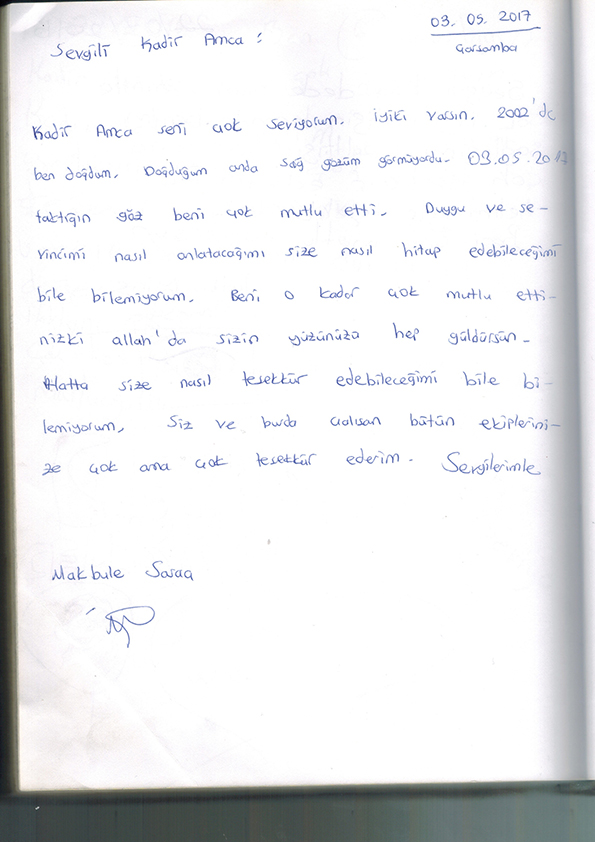 03. 05. 2017
Çarşamba
Sevgili Kadir Amca :
Kadir Amca seni çok seviyorum. iyiki varsın. 2002'de
ben doğdum. Doğduğum anda sağ gözüm görmüyordu. 03.05.2017
taktığın göz beni çok mutlu etti. Duygu ve se-
vincimi nasıl anlatacağımı size nasıl hitap edebileceğimi
bile bilemiyorum. Beni o kadar çok mutlu etti-
nizki allah'da sizin yüzünüzü hep güldürsün.
Hatta size nasıl teşekkür edebileceğimi bile bi-
lemiyorum. Siz ve burda çalışan bütün ekiplerini-
ze çok ama çok teşekkür ederim. Sevgilerimle
Makbule Saraç